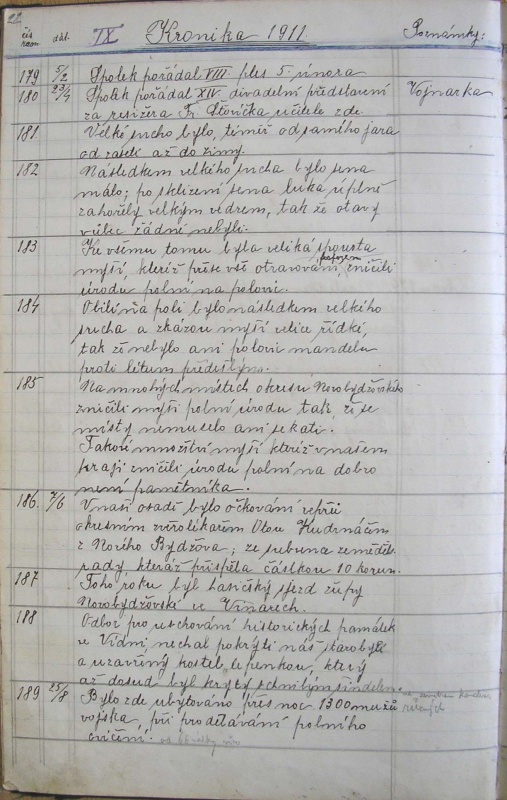 22
čís. řazem dát. IX Kronika 1911 Poznámky:
179 5/2 Spolek pořádal VIII. ples 5. února
180 23/4 Spolek pořádal XIV. divadelní představení Vojnarka
za režiséra Fr. Šťovíčka učitele zde.
181. Velké sucho bylo, téměř od samého jara
od zasetí až do zimy.
182 Následkem velkého sucha bylo sena
málo; po sklizení sena luka úplně
zahořely velkým vedrem, tak že otavy
vůbec žádné nebyli.
183 Ke všemu tomu byla veliká spousta
myší, kteréž přese vše otravování, fosforem zničili
úrodu polní na polovic.
184 Obilí na poli bylo následkem velkého
sucha a zkázou myší velice řídké,
tak že nebylo ani polovic mandelů
proti létům předešlým.
185 Na mnohých místech okresu Novobydžovského
zničili myši polní úrodu tak, že se
místy nemuselo ani sekati.
Takové množství myší kteréž v našem
kraji zničili úrodu polní na dobro
není pamětníka.
186. 7/6 V naší osadě bylo očkování vepřů
okresním zvěrolékařem Otou Kudrnáčem
z Nového Bydžova; ze subvence zeměděls.
rady kteráž přispěla částkou 10 korun.
187 Toho roku byl hasičský sjezd župy
Novobydžovské ve Vinarech.
188 Odbor pro uschování historických památek
ve Vídni, nechal pokrýti náš starobylý
a uzavřený kostel, lepenkou, který
až dosud byl krytý schnilým šindelem.
189 25/8 Bylo zde ubytováno přes noc 1300 mužů
vojska, při prodělávání polního
cvičení.